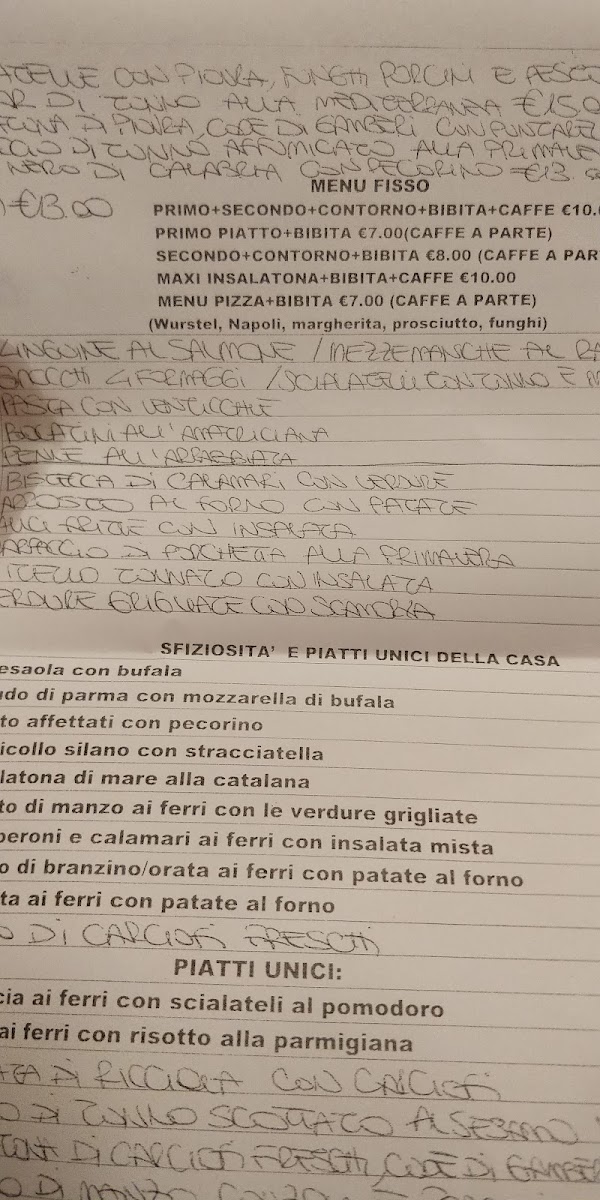 CON PIOVRA, FUNGHI PORCINI E PESCE
DI TONNO ALLA MEDITERRANEA €15.0
DI PIOVRA, CODE DI GAMBERI CON PUNTAREL
DI TONNO AFFUMICATO ALLA PRIMAVE
NERO DI CALABRIA CON PECORINO =€13.
MENU FISSO
€13.00
PRIMO+SECONDO+CONTORNO+BIBITA+CAFFE €10.
PRIMO PIATTO+BIBITA €7.00(CAFFE A PARTE)
SECONDO+CONTORNO+BIBITA €8.00 (CAFFE A PAR
MAXI INSALATONA+BIBITA+CAFFE €10.00
MENU PIZZA+BIBITA €7.00 (CAFFE A PARTE)
(Wurstel, Napoli, margherita, prosciutto, funghi)
LINGUINE AL SALMONE / MEZZEMANCHE AL RA
GNOCCHI 4 FORMAGGI / SCIALATELLI CON TONNO E
PASTA CON LENTICCHIE
BUCATINI ALL'AMATRICIANA
PENNE ALL'ARRABBIATA
BISTECCA DI CALAMARI CON VERDURE
ARROSTO AL FORNO CON PATATE
ALICI FRITTE CON INSALATA
ARPACCIO DI PORCHETTA ALLA PRIMAVERA
ITELLO TONNATO CON INSALATA
ERDURE GRIGLIATE CON SCAMORZA
SFIZIOSITA' E PIATTI UNICI DELLA CASA
esaola con bufala
udo di parma con mozzarella di bufala
to affettati con pecorino
icollo silano con stracciatella
latona di mare alla catalana
to di manzo ai ferri con le verdure grigliate
peroni e calamari ai ferri con insalata mista
o di branzino/orata ai ferri con patate al forno
ta ai ferri con patate al forno
O DI CARCIOFI FRESCHI
PIATTI UNICI:
cia ai ferri con scialateli al pomodoro
ai ferri con risotto alla parmigiana
DI RICCIOLA CON CARCIOFI
O DI TONNO SCOTTATO AL SESAMO
DI CARCIOFI FRESCHI, CODE DI GAMBER
O DI MANZO